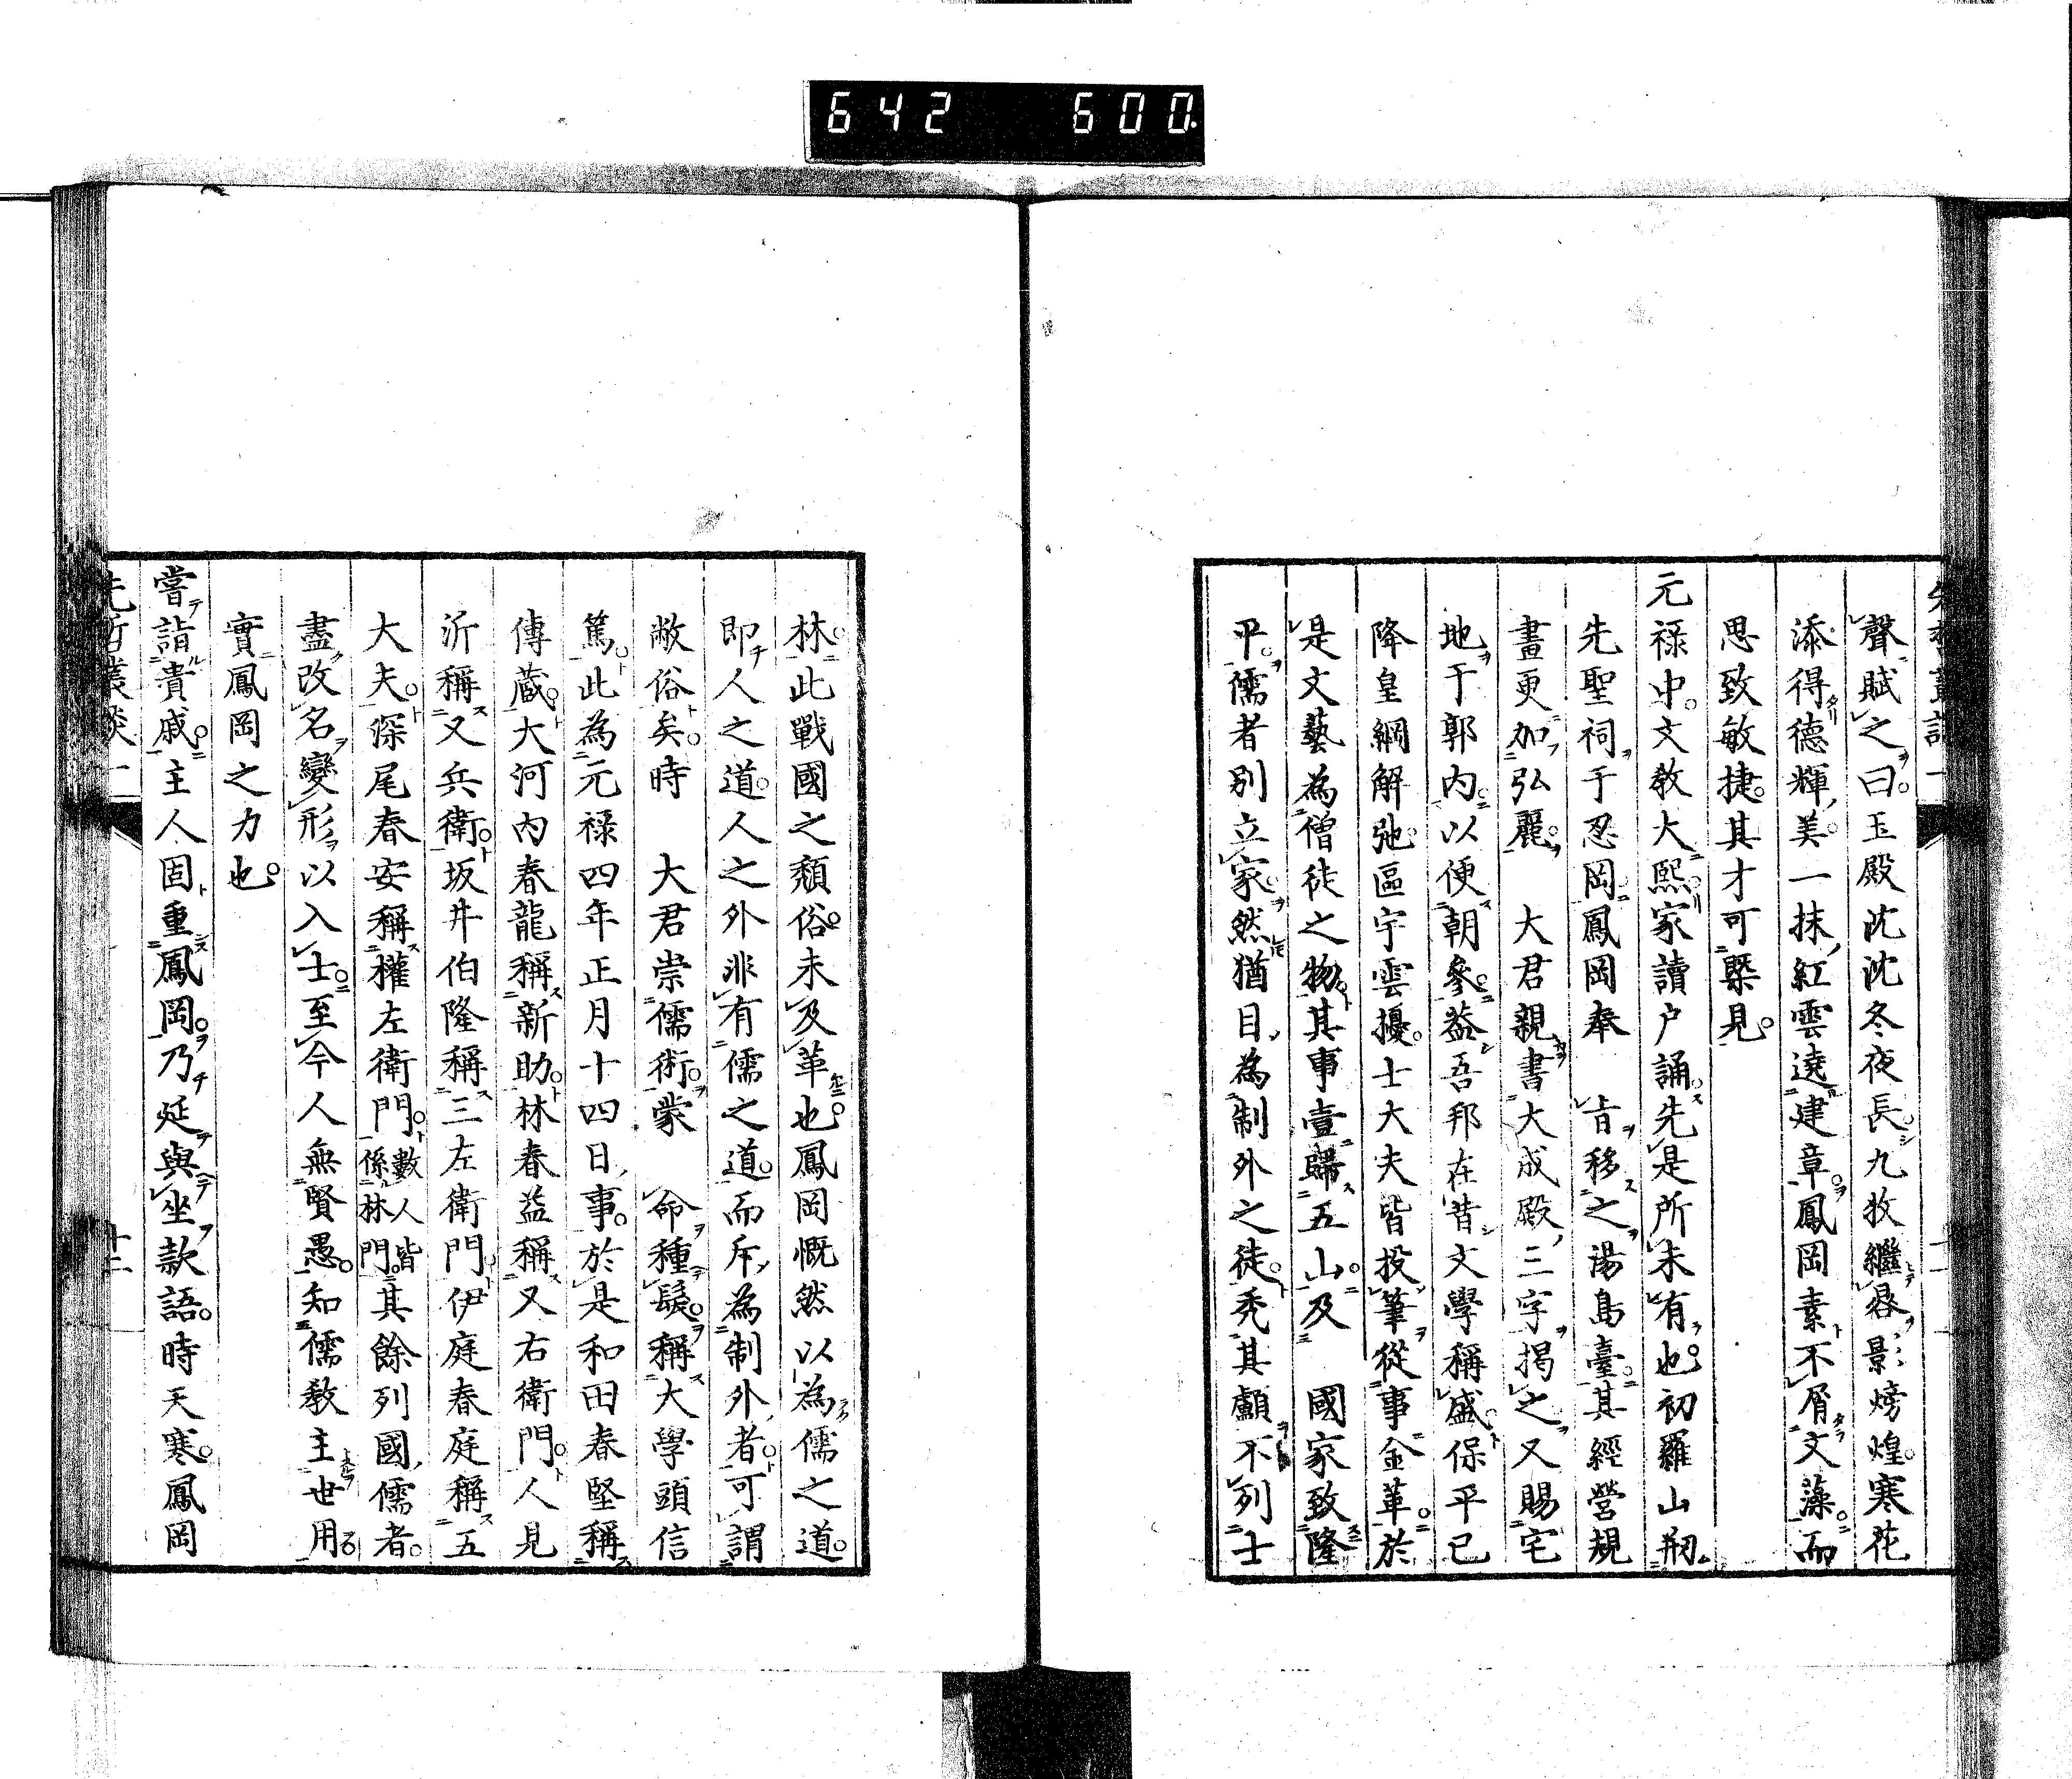 642 600.
聲賦之曰玉殿沈沈冬夜長九枚繼晷影熀煌寒花
添得德輝美一抹紅雲遶建章鳳岡素不屑文藻而
思致敏捷其才可槩見
元禄中文教大熙家讀户誦先是所未有也初羅山剏
先聖祠于忍岡鳳岡奉 旨移之湯島臺其經營規
畫更加弘麗 大君親書大成殿三字揭之又賜宅
地于郭內以便朝參益吾邦在昔文學稱盛保平已
降皇綱解弛區宇雲擾士大夫皆投筆從事金革於
是文藝為僧徒之物其事壹歸五山及 國家致隆
平儒者別立家然猶目為制外之徒禿其顱不列士
林此戰國之頹俗未及革也鳳岡慨然以為儒之道
即人之道人之外非有儒之道而斥為制外者可謂
敝俗矣時 大君崇儒術蒙 命種髮稱大學頭信
篤此為元禄四年正月十四日事於是和田春堅稱
傳蔵大河內春龍稱新助林春益稱又右衛門人見
沂稱又兵衛坂井伯隆稱三左衛門伊庭春庭稱五
大夫深尾春安稱權左衛門數人皆係林門其餘列國儒者
盡改名變形以入士至今人無賢愚知儒教主世用
實鳳岡之力也
嘗詣貴戚主人固重鳳岡乃延與坐款語時天寒鳳岡
先哲叢談 十二